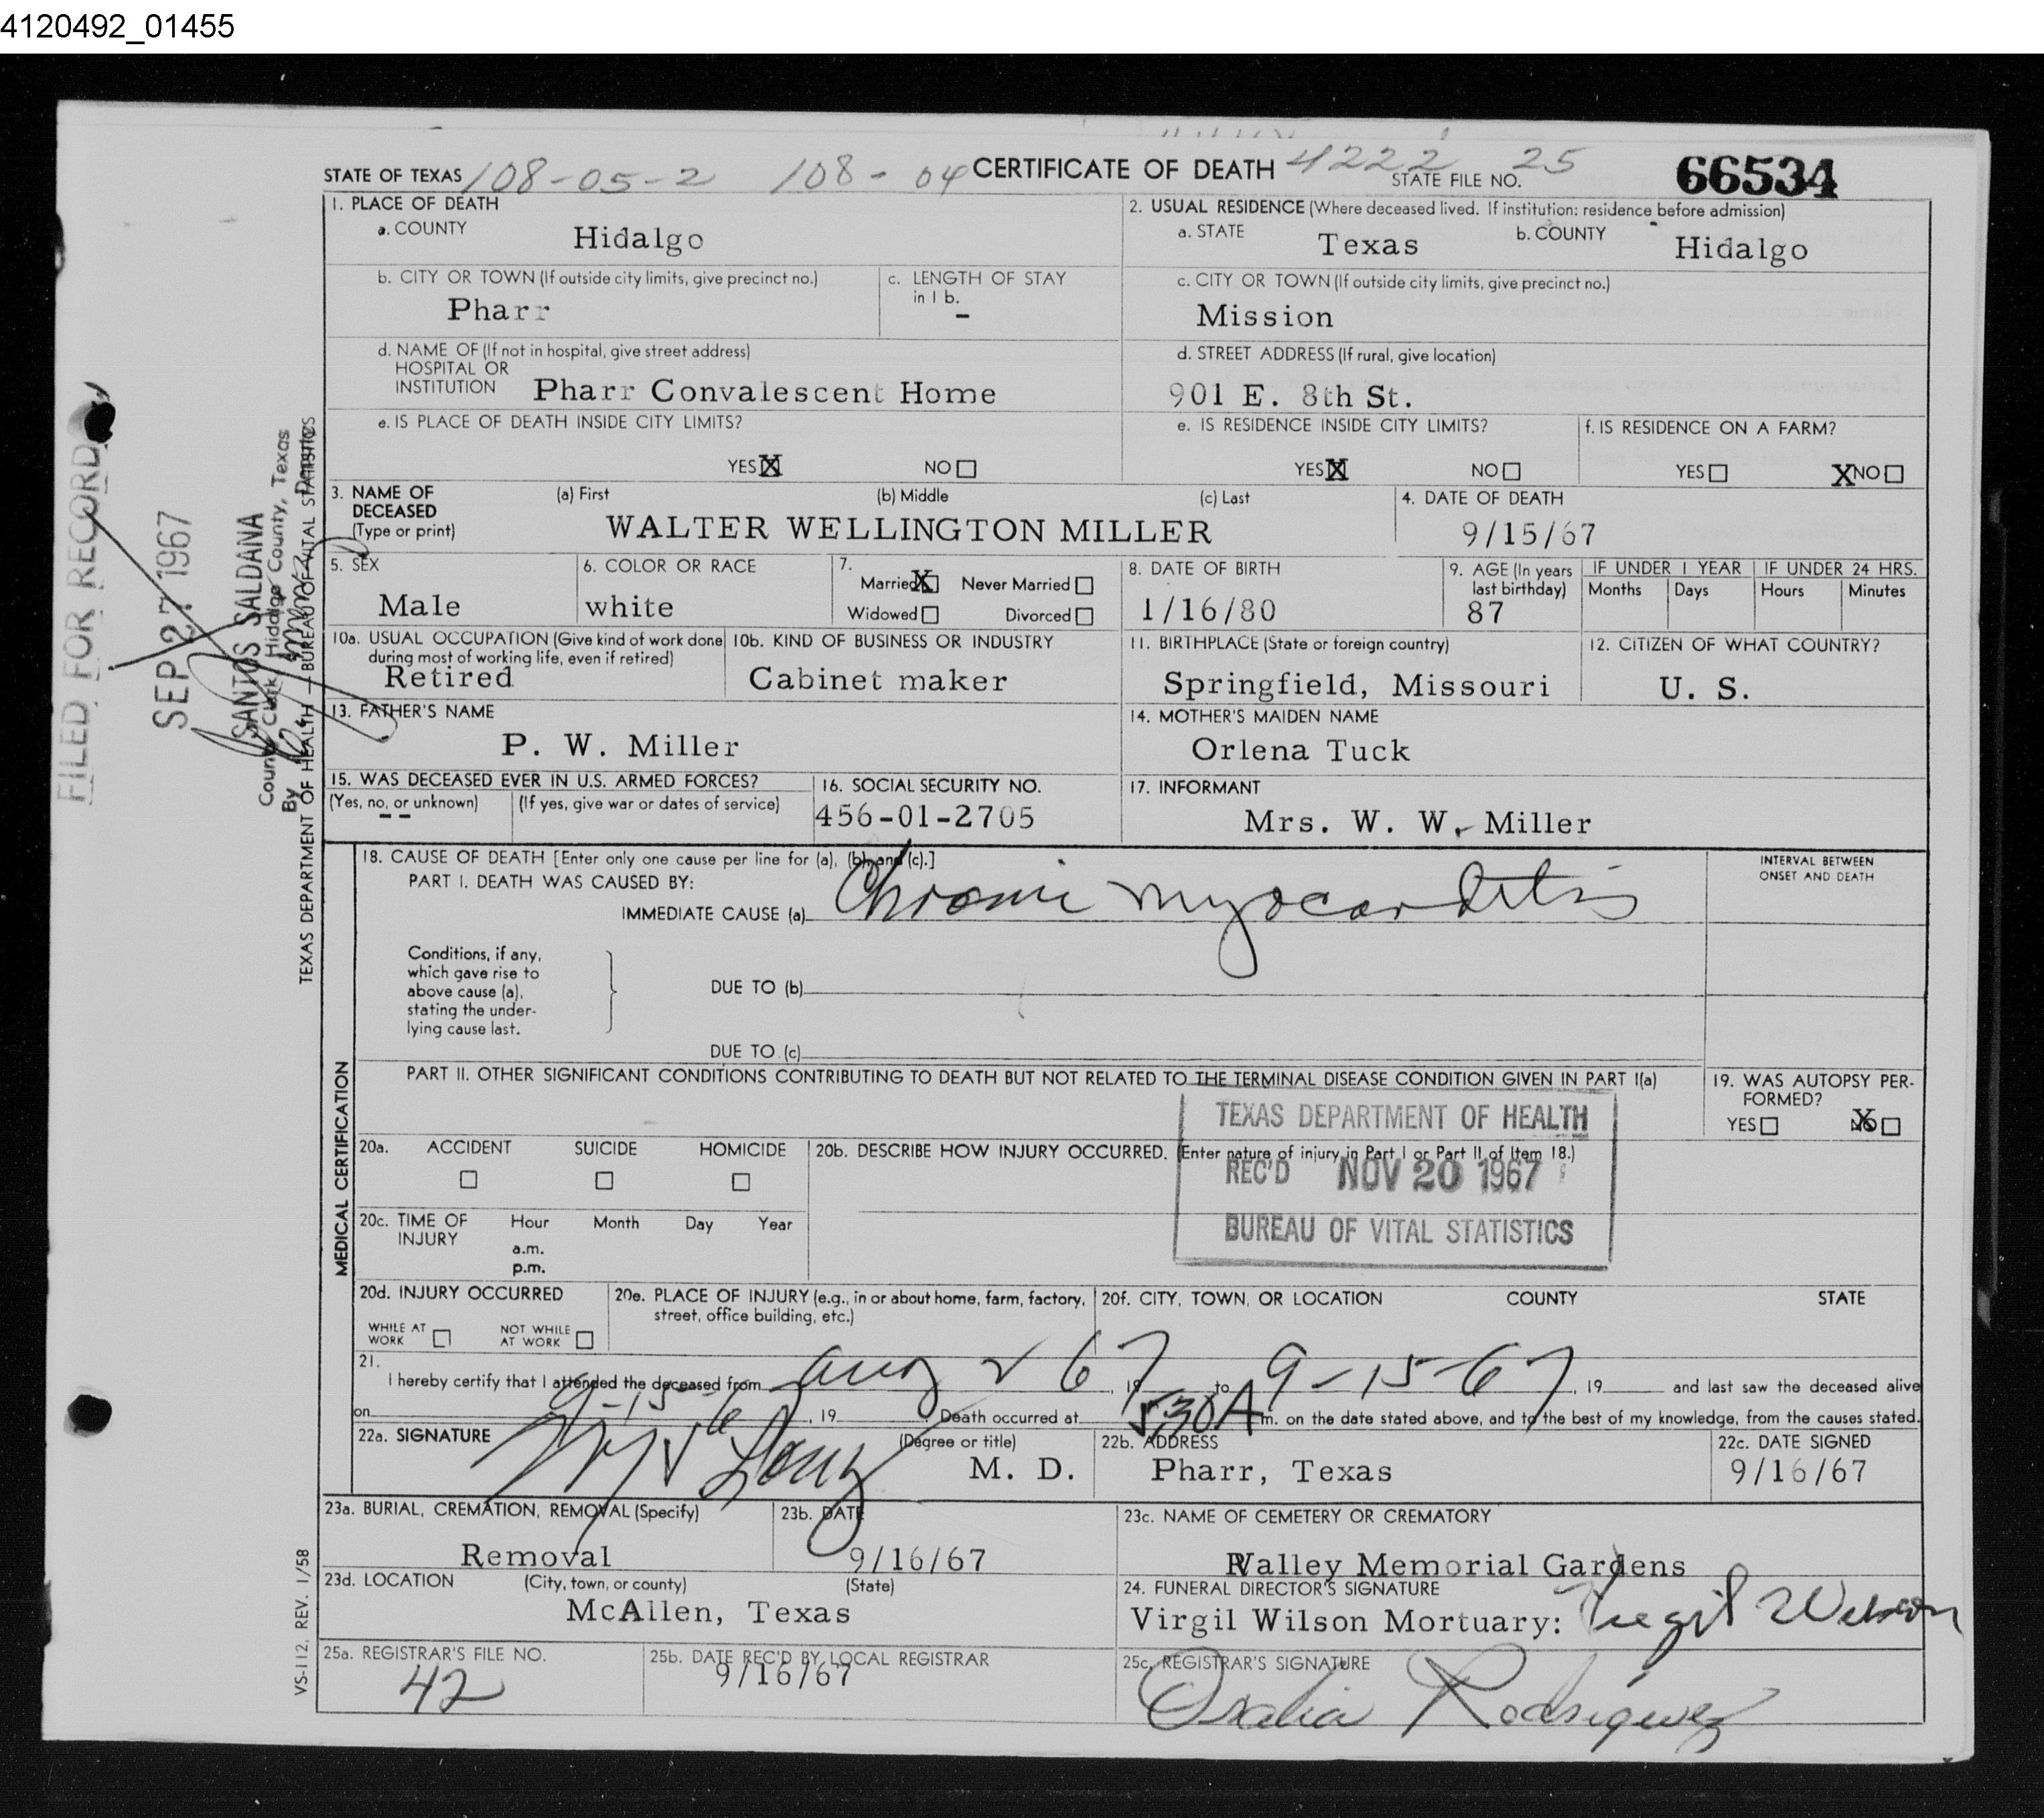 4120492_01455
STATE OF TEXAS 108-05-2 108-04 CERTIFICATE OF DEATH 4222 25 STATE FILE NO. 66534
1. PLACE OF DEATH
a. COUNTY Hidalgo
2. USUAL RESIDENCE (Where deceased lived. If institution: residence before admission)
a. STATE Texas b. COUNTY Hidalgo
b. CITY OR TOWN (If outside city limits, give precinct no.) Pharr
c. LENGTH OF STAY in 1 b. -
c. CITY OR TOWN (If outside city limits, give precinct no.)
Mission
d. NAME OF (If not in hospital, give street address)
HOSPITAL OR
INSTITUTION Pharr Convalescent Home
d. STREET ADDRESS (If rural, give location)
901 E. 8th St.
e. IS PLACE OF DEATH INSIDE CITY LIMITS?
YES X NO
e. IS RESIDENCE INSIDE CITY LIMITS?
YES X NO
f. IS RESIDENCE ON A FARM?
YES X NO
3. NAME OF DECEASED (Type or print)
(a) First (b) Middle (c) Last
WALTER WELLINGTON MILLER
4. DATE OF DEATH
9/15/67
5. SEX
Male
6. COLOR OR RACE
white
7. Married X Never Married
Widowed Divorced
8. DATE OF BIRTH
1/16/80
9. AGE (In years last birthday)
87
IF UNDER 1 YEAR
Months Days
IF UNDER 24 HRS.
Hours Minutes
10a. USUAL OCCUPATION (Give kind of work done during most of working life, even if retired)
Retired
10b. KIND OF BUSINESS OR INDUSTRY
Cabinet maker
11. BIRTHPLACE (State or foreign country)
Springfield, Missouri
12. CITIZEN OF WHAT COUNTRY?
U. S.
13. FATHER'S NAME
P. W. Miller
14. MOTHER'S MAIDEN NAME
Orlena Tuck
15. WAS DECEASED EVER IN U.S. ARMED FORCES?
(Yes, no, or unknown) (If yes, give war or dates of service)
--
16. SOCIAL SECURITY NO.
456-01-2705
17. INFORMANT
Mrs. W. W. Miller
18. CAUSE OF DEATH [Enter only one cause per line for (a), (b), and (c).]
PART I. DEATH WAS CAUSED BY:
IMMEDIATE CAUSE (a) Chronic myocarditis
INTERVAL BETWEEN
ONSET AND DEATH
Conditions, if any,
which gave rise to
above cause (a),
stating the under-
lying cause last.
DUE TO (b)
DUE TO (c)
PART II. OTHER SIGNIFICANT CONDITIONS CONTRIBUTING TO DEATH BUT NOT RELATED TO THE TERMINAL DISEASE CONDITION GIVEN IN PART I(a)
19. WAS AUTOPSY PER-
FORMED?
YES NO X
TEXAS DEPARTMENT OF HEALTH
REC'D NOV 20 1967
BUREAU OF VITAL STATISTICS
20a. ACCIDENT SUICIDE HOMICIDE
20b. DESCRIBE HOW INJURY OCCURRED. (Enter nature of injury in Part I or Part II of Item 18.)
20c. TIME OF INJURY
Hour Month Day Year
a.m.
p.m.
20d. INJURY OCCURRED
WHILE AT WORK NOT WHILE AT WORK
20e. PLACE OF INJURY (e.g., in or about home, farm, factory, street, office building, etc.)
20f. CITY, TOWN, OR LOCATION COUNTY STATE
21.
I hereby certify that I attended the deceased from Aug 2 67, 19 to 9-15-67, 19 and last saw the deceased alive
on 9-15-6, 19 Death occurred at 5:30 A m. on the date stated above, and to the best of my knowledge, from the causes stated.
22a. SIGNATURE (Degree or title) M. D.
22b. ADDRESS
Pharr, Texas
22c. DATE SIGNED
9/16/67
23a. BURIAL, CREMATION, REMOVAL (Specify)
Removal
23b. DATE
9/16/67
23c. NAME OF CEMETERY OR CREMATORY
Valley Memorial Gardens
23d. LOCATION (City, town, or county) (State)
McAllen, Texas
24. FUNERAL DIRECTOR'S SIGNATURE
Virgil Wilson Mortuary: Virgil Wilson
25a. REGISTRAR'S FILE NO.
42
25b. DATE REC'D BY LOCAL REGISTRAR
9/16/67
25c. REGISTRAR'S SIGNATURE
Oralia Rodriguez
FILED FOR RECORD
SEP 27 1967
SANTOS SALDANA
County Clerk, Hidalgo County, Texas
By Deputy
TEXAS DEPARTMENT OF HEALTH — BUREAU OF VITAL STATISTICS
MEDICAL CERTIFICATION
VS-112, REV. 1/58